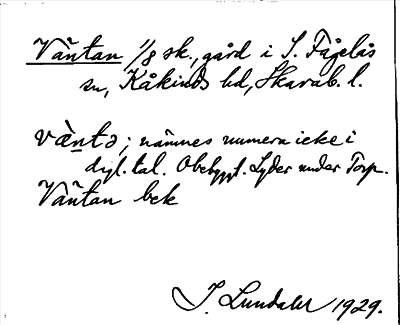 Väntan 1/8 sk., gård i S. Fågelås
sn, Kåkinds hd, Skarab. l.
vä̀ntə; nämnes numera icke i
dyl. tal. Obebyggt. Lyder under Torp.
Väntan bek
J. Lundahl 1929.